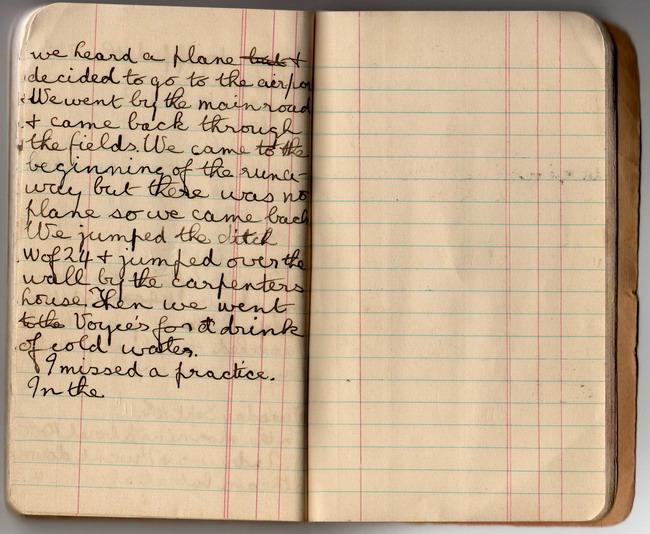 we heard a plane but &
decided to go to the airpor
We went by the main road
& came back through
the fields. We came to the
beginning of the runa-
way but there was no
plane so we came back
We jumped the ditch
W of 24 & jumped over the
wall by the carpenters
house. Then we went
to the Voyce's for a drink
of cold water.
I missed a practice.
In the